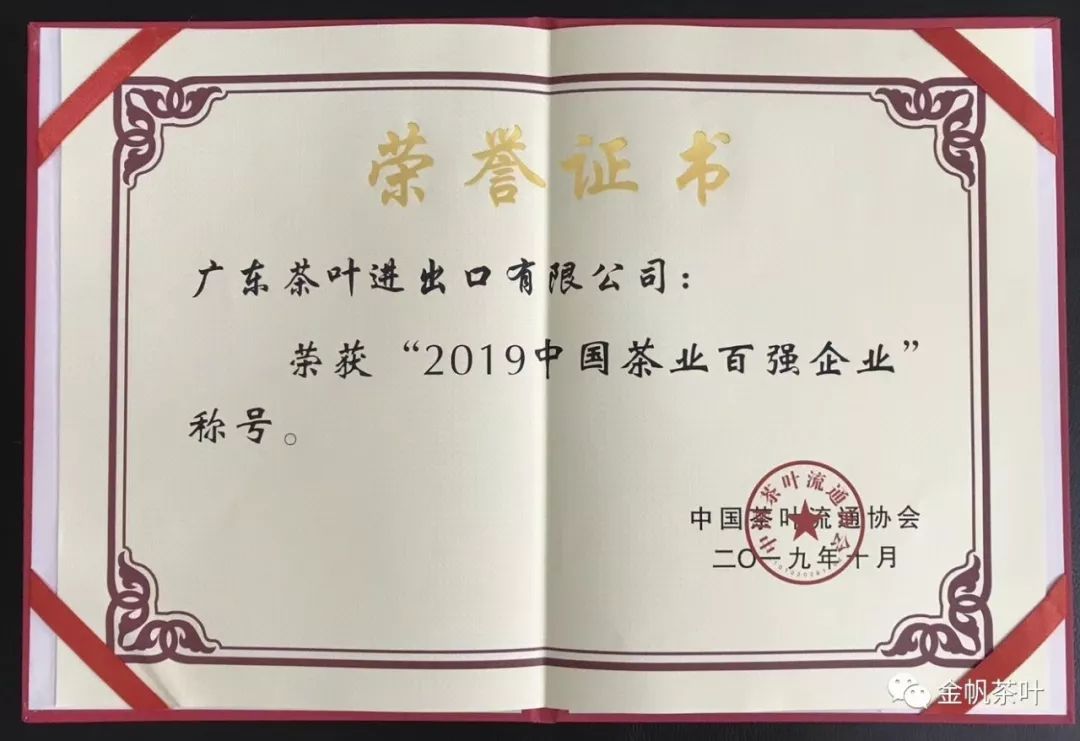 荣誉证书
广东茶叶进出口有限公司：
荣获“2019中国茶业百强企业”
称号。
中国茶叶流通协会
二〇一九年十月
中国茶叶流通协会
金帆茶叶